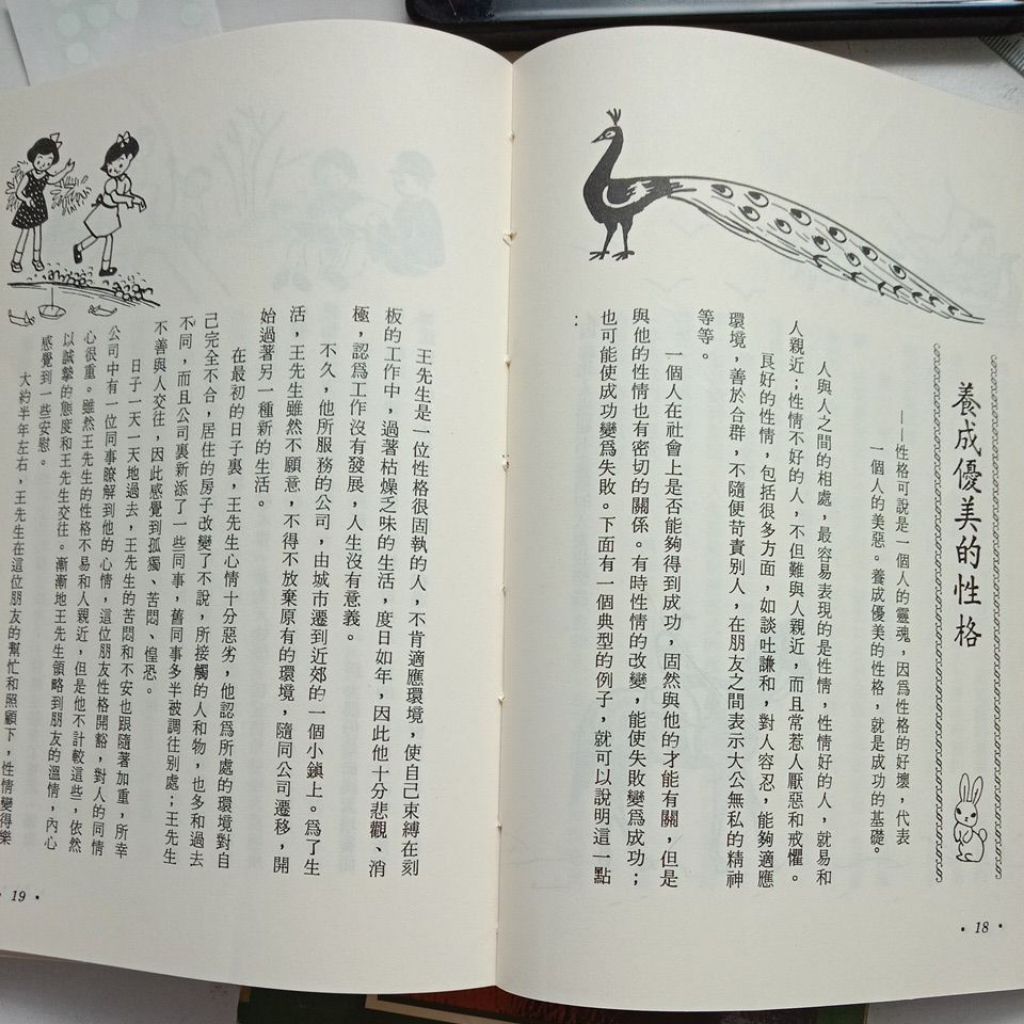 養成優美的性格
——性格可說是一個人的靈魂，因爲性格的好壞，代表
一個人的美惡。養成優美的性格，就是成功的基礎。
人與人之間的相處，最容易表現的是性情，性情好的人，就易和
人親近；性情不好的人，不但難與人親近，而且常惹人厭惡和戒懼。
良好的性情，包括很多方面，如談吐謙和，對人容忍，能夠適應
環境，善於合群，不隨便苛責別人，在朋友之間表示大公無私的精神
等等。
一個人在社會上是否能夠得到成功，固然與他的才能有關，但是
與他的性情也有密切的關係。有時性情的改變，能使失敗變爲成功；
也可能使成功變爲失敗。下面有一個典型的例子，就可以說明這一點
：
• 18 •
王先生是一位性格很固執的人，不肯適應環境，使自己束縛在刻
板的工作中，過著枯燥乏味的生活，度日如年，因此他十分悲觀、消
極，認爲工作沒有發展，人生沒有意義。
不久，他所服務的公司，由城市遷到近郊的一個小鎮上。爲了生
活，王先生雖然不願意，不得不放棄原有的環境，隨同公司遷移，開
始過著另一種新的生活。
在最初的日子裏，王先生心情十分惡劣，他認爲所處的環境對自
己完全不合，居住的房子改變了不說，所接觸的人和物，也多和過去
不同，而且公司裏新添了一些同事，舊同事多半被調往別處；王先生
不善與人交往，因此感覺到孤獨、苦悶、惶恐。
日子一天一天地過去，王先生的苦悶和不安也跟隨著加重，所幸
公司中有一位同事瞭解到他的心情，這位朋友性格開豁，對人的同情
心很重。雖然王先生的性格不易和人親近，但是他不計較這些，依然
以誠摯的態度和王先生交往。漸漸地王先生領略到朋友的溫情，內心
感覺到一些安慰。
大約半年左右，王先生在這位朋友的幫忙和照顧下，性情變得樂
• 19 •